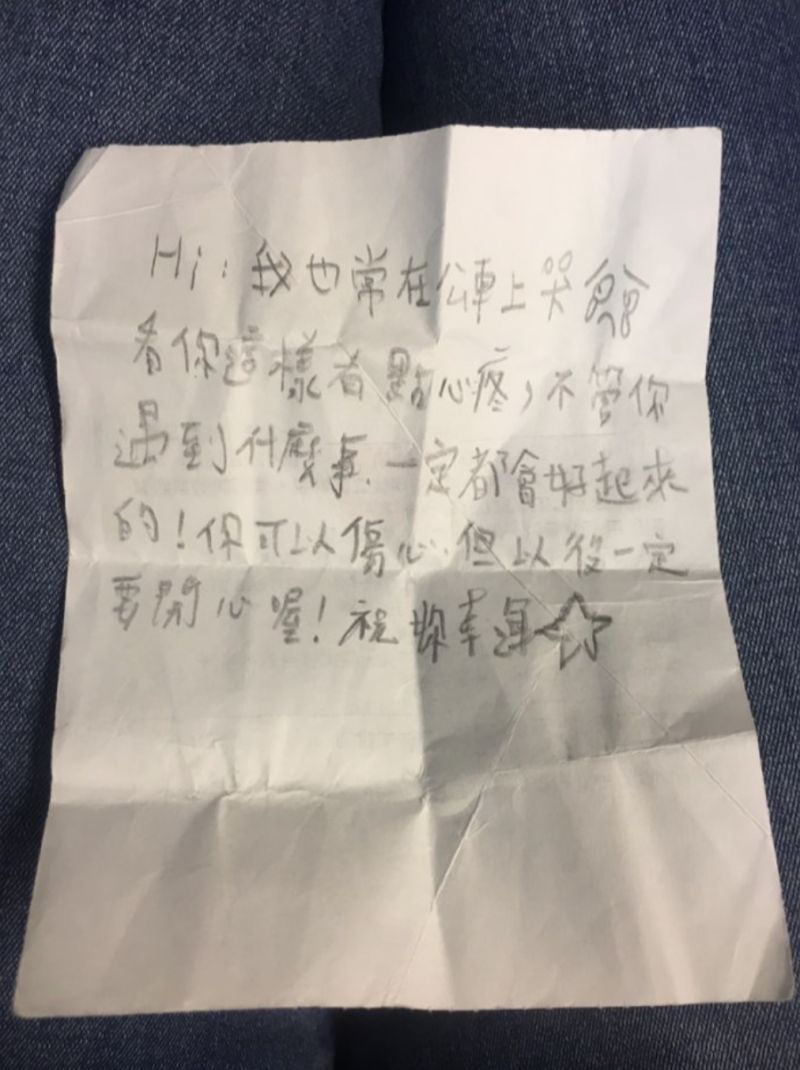 Hi：我也常在公車上哭
看你這樣有點心疼，不管你
遇到什麼事、一定都會好起來
的！你可以傷心但以後一定
要開心喔！祝你幸運